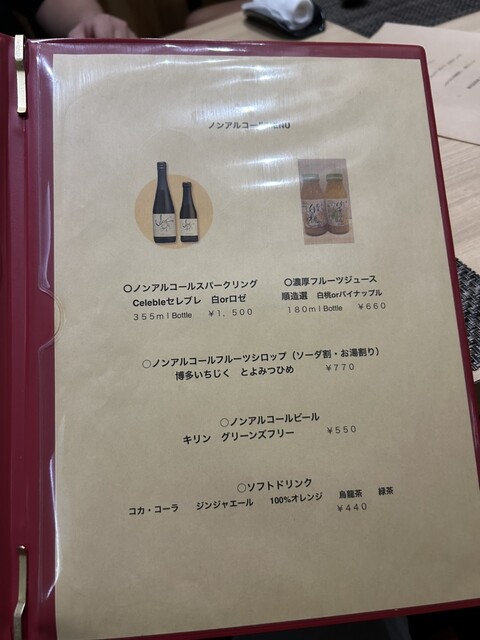 ノンアルコールMENU
○ノンアルコールスパークリング
Celebleセレブレ 白orロゼ
355ml Bottle ￥1,500
○濃厚フルーツジュース
順造選 白桃orパイナップル
180ml Bottle ￥660
○ノンアルコールフルーツシロップ（ソーダ割・お湯割り）
博多いちじく とよみつひめ ￥770
○ノンアルコールビール
キリン グリーンズフリー ￥550
○ソフトドリンク
コカ・コーラ ジンジャエール 100%オレンジ 烏龍茶 緑茶
￥440